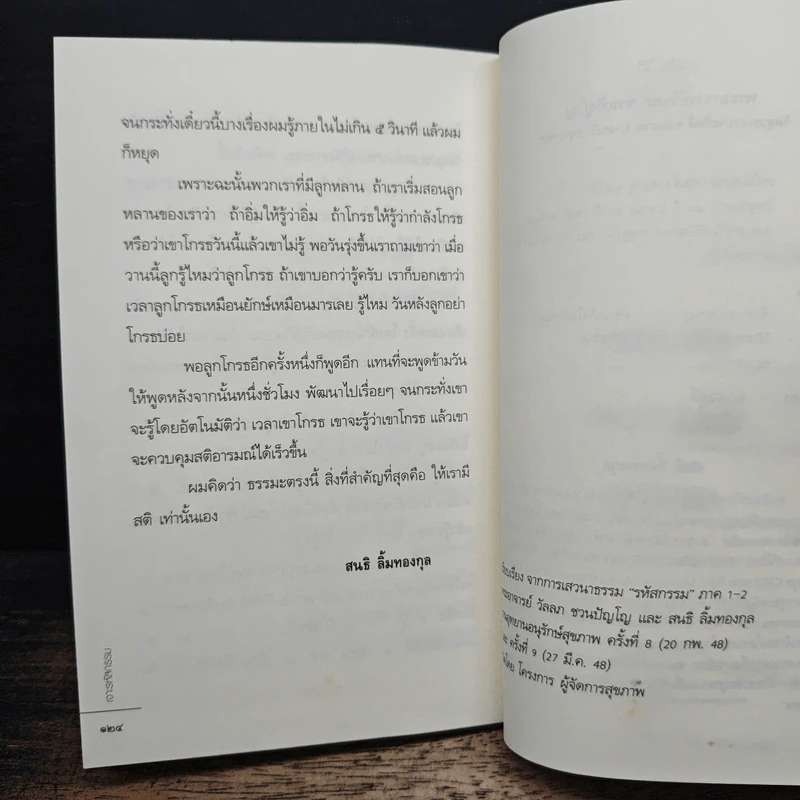 จนกระทั่งเดี๋ยวนี้บางเรื่องผมรู้ภายในไม่เกิน ๕ วินาที แล้วผม
ก็หยุด
เพราะฉะนั้นพวกเราที่มีลูกหลาน ถ้าเราเริ่มสอนลูก
หลานของเราว่า ถ้าอิ่มให้รู้ว่าอิ่ม ถ้าโกรธให้รู้ว่ากำลังโกรธ
หรือว่าเขาโกรธวันนี้แล้วเขาไม่รู้ พอวันรุ่งขึ้นเราถามเขาว่า เมื่อ
วานนี้ลูกรู้ไหมว่าลูกโกรธ ถ้าเขาบอกว่ารู้ครับ เราก็บอกเขาว่า
เวลาลูกโกรธเหมือนยักษ์เหมือนมารเลย รู้ไหม วันหลังลูกอย่า
โกรธบ่อย
พอลูกโกรธอีกครั้งหนึ่งก็พูดอีก แทนที่จะพูดข้ามวัน
ให้พูดหลังจากนั้นหนึ่งชั่วโมง พัฒนาไปเรื่อยๆ จนกระทั่งเขา
จะรู้โดยอัตโนมัติว่า เวลาเขาโกรธ เขาจะรู้ว่าเขาโกรธ แล้วเขา
จะควบคุมสติอารมณ์ได้เร็วขึ้น
ผมคิดว่า ธรรมะตรงนี้ สิ่งที่สำคัญที่สุดคือ ให้เรามี
สติ เท่านั้นเอง
สนธิ ลิ้มทองกุล
เจาะรหัสกรรม
๑๒๔
เรียบเรียง จากการเสวนาธรรม "รหัสกรรม" ภาค 1-2
พระอาจารย์ วัลลภ ชวนปัญโญ และ สนธิ ลิ้มทองกุล
อุทยานอนุรักษ์สุขภาพ ครั้งที่ 8 (20 กพ. 48)
และ ครั้งที่ 9 (27 มี.ค. 48)
โดย โครงการ ผู้จัดการสุขภาพ